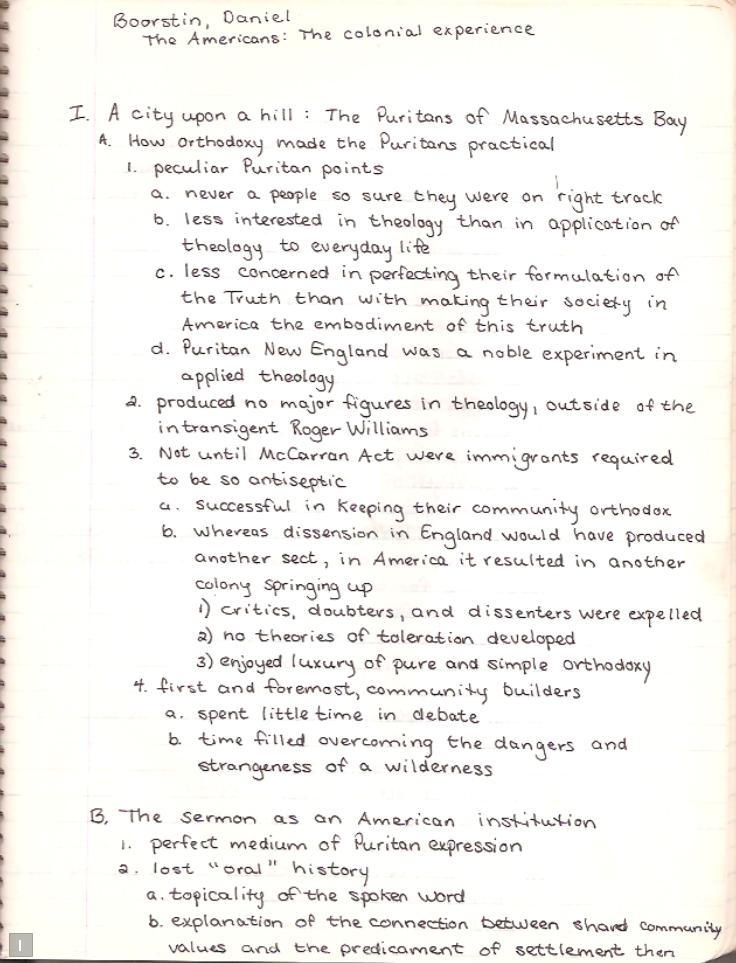 Boorstin, Daniel
The Americans: The colonial experience
I. A city upon a hill : The Puritans of Massachusetts Bay
A. How orthodoxy made the Puritans practical
1. peculiar Puritan points
a. never a people so sure they were on right track
b. less interested in theology than in application of
theology to everyday life
c. less concerned in perfecting their formulation of
the Truth than with making their society in
America the embodiment of this truth
d. Puritan New England was a noble experiment in
applied theology
2. produced no major figures in theology, outside of the
intransigent Roger Williams
3. Not until McCarran Act were immigrants required
to be so antiseptic
a. successful in keeping their community orthodox
b. whereas dissension in England would have produced
another sect, in America it resulted in another
colony springing up
1) critics, doubters, and dissenters were expelled
2) no theories of toleration developed
3) enjoyed luxury of pure and simple orthodoxy
4. first and foremost, community builders
a. spent little time in debate
b. time filled overcoming the dangers and
strangeness of a wilderness
B. The sermon as an American institution
1. perfect medium of Puritan expression
2. lost "oral" history
a. topicality of the spoken word
b. explanation of the connection between shard community
values and the predicament of settlement then
1